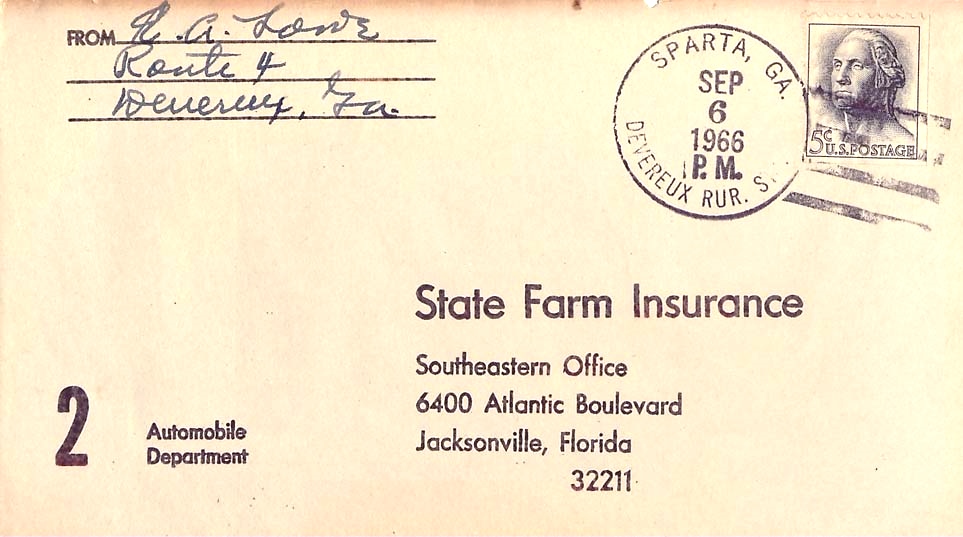 FROM R. A. Lowe
Route 4
Devereux, Ga.
SPARTA, GA.
SEP
6
1966
P.M.
DEVEREUX RUR.
5c
U.S. POSTAGE
State Farm Insurance
Southeastern Office
6400 Atlantic Boulevard
Jacksonville, Florida
32211
2
Automobile
Department